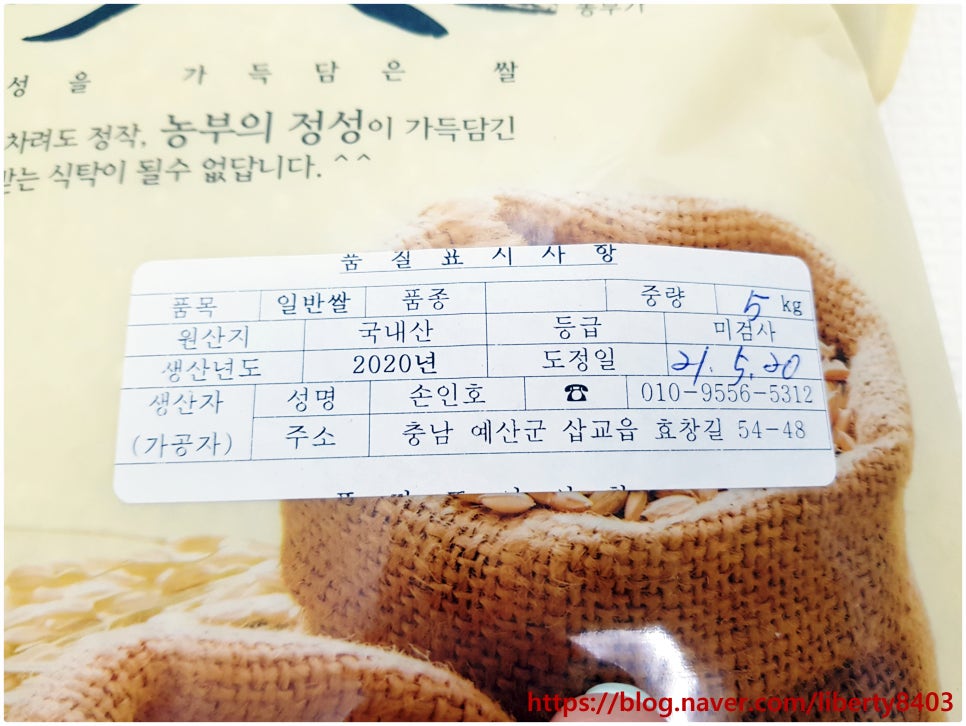 농부가
성을 가득담은 쌀
차려도 정작, 농부의 정성이 가득담긴
받는 식탁이 될수 없답니다. ^^
품질표시사항
품목 일반쌀 품종 중량 5 kg
원산지 국내산 등급 미검사
생산년도 2020년 도정일 21. 5. 20
생산자 성명 손인호 ☎ 010-9556-5312
(가공자) 주소 충남 예산군 삽교읍 효창길 54-48
https://blog.naver.com/liberty8403